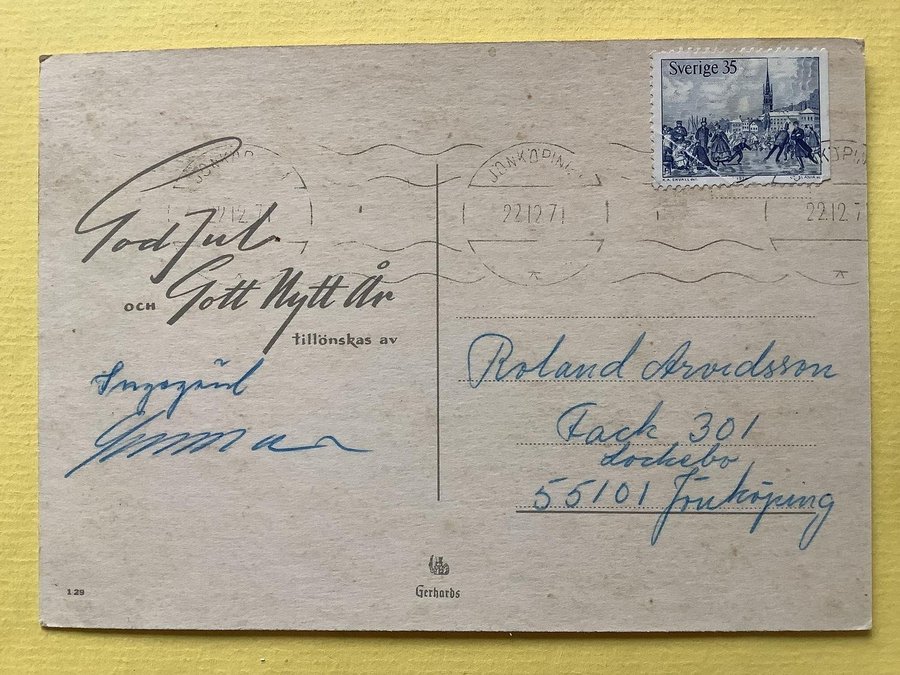 Sverige 35
JÖNKÖPING
22.12.71
JÖNKÖPING
22.12.71
JÖNKÖPING
22.12.7
God Jul
OCH Gott Nytt År
tillönskas av
Gunnar
Roland Arvidsson
Fack 301
Lockebo
55101 Jönköping
Gerhards
1 29